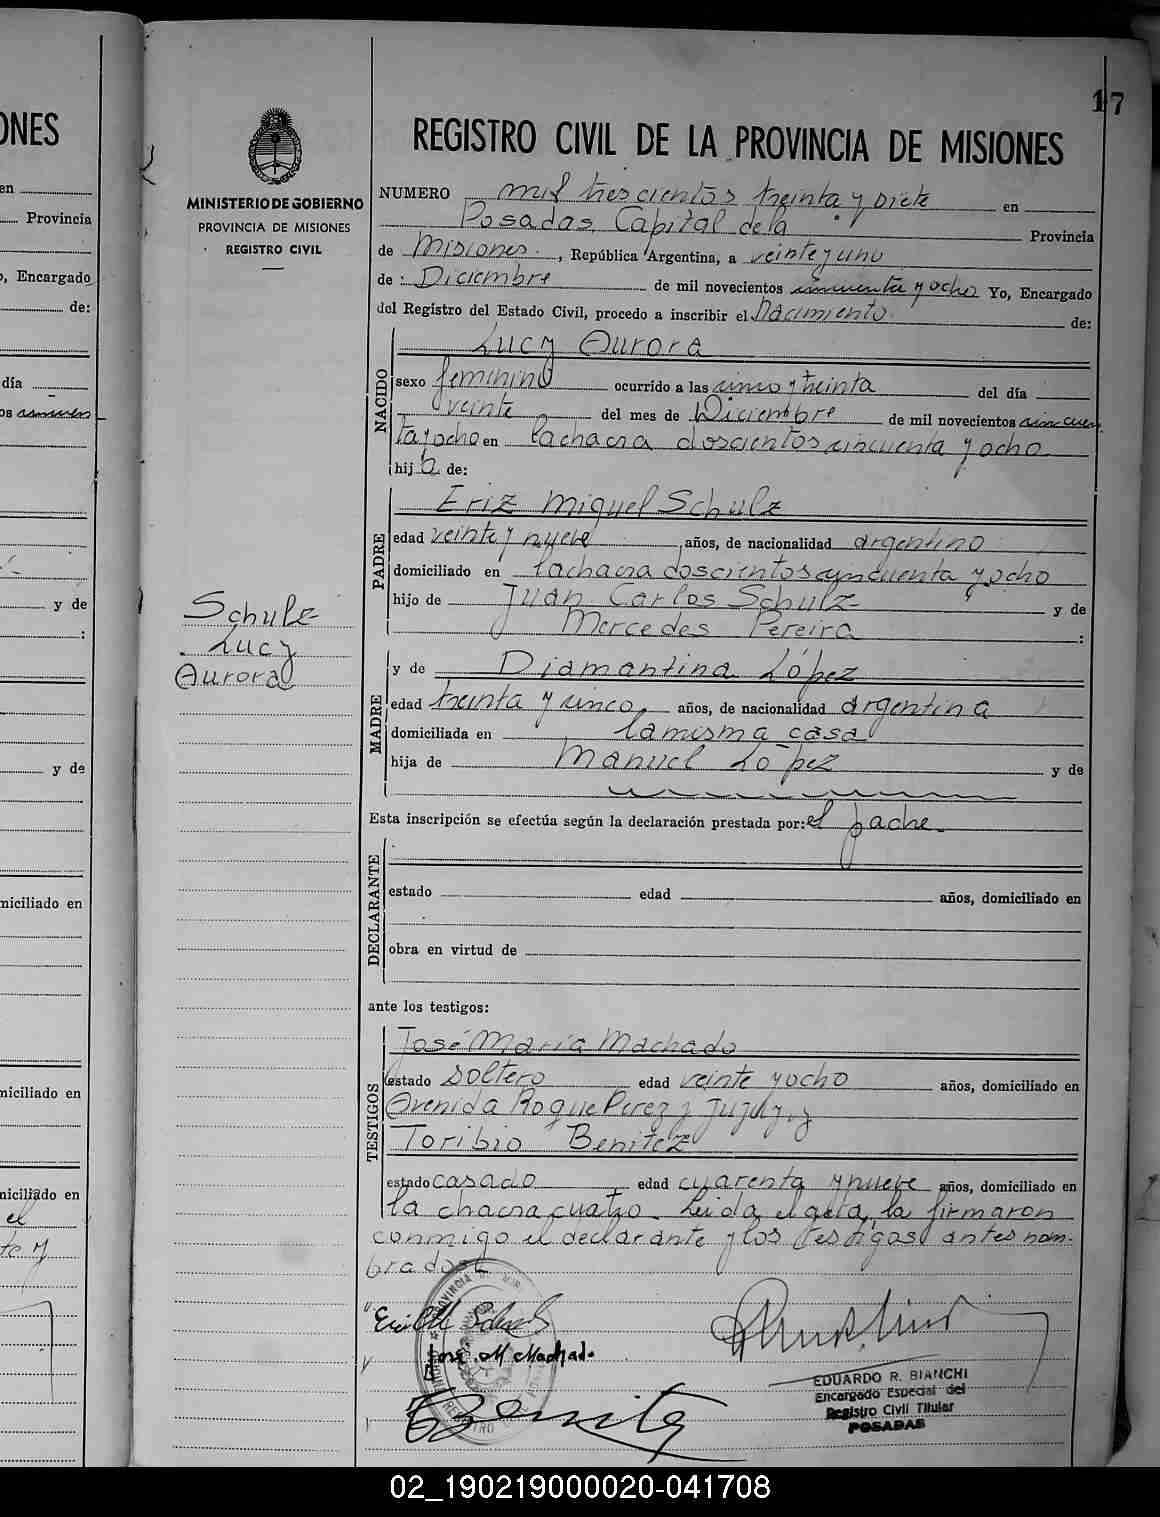 17
REGISTRO CIVIL DE LA PROVINCIA DE MISIONES
MINISTERIO DE GOBIERNO
PROVINCIA DE MISIONES
REGISTRO CIVIL
Schulz
Lucy
Aurora
NUMERO mil trescientos treinta y siete en
Posadas, Capital de la Provincia
de Misiones, República Argentina, a veinte y uno
de Diciembre de mil novecientos cincuenta y ocho Yo, Encargado
del Registro del Estado Civil, procedo a inscribir el Nacimiento de:
NACIDO
Lucy Aurora
sexo femenino ocurrido a las cinco y treinta del día
veinte del mes de Diciembre de mil novecientos cincuen
ta y ocho en la chacra doscientos cincuenta y ocho
hija de:
PADRE
Eriz Miguel Schulz
edad veinte y nueve años, de nacionalidad argentino
domiciliado en la chacra doscientos cincuenta y ocho
hijo de Juan Carlos Schulz y de
Mercedes Pereira :
MADRE
y de Diamantina López
edad treinta y cinco años, de nacionalidad argentina
domiciliada en la misma casa
hija de Manuel López y de
Esta inscripción se efectúa según la declaración prestada por: el padre.
DECLARANTE
estado edad años, domiciliado en
obra en virtud de
ante los testigos:
TESTIGOS
José María Machado
estado soltero edad veinte y ocho años, domiciliado en
Avenida Roque Perez y Jujuy y
Toribio Benitez
estado casado edad cuarenta y nueve años, domiciliado en
la chacra cuatro. Leida el acta, la firmaron
conmigo el declarante y los testigos antes nom-
brados.
José M Machado
Benitez
EDUARDO R. BIANCHI
Encargado Especial del
Registro Civil Titular
POSADAS
ONES
en
Provincia
, Encargado
de:
día
y de
:
y de
miciliado en
miciliado en
miciliado en
el
02_190219000020-041708